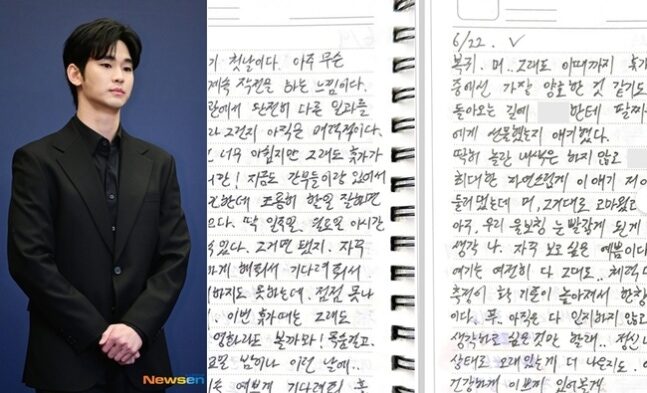 기 첫날이다. 아주 무슨
계속 작전을 하는 느낌이다.
완전히 다른 일과를
라 그런지 아직은
너무 아쉽지만 그래도 휴가가
지만! 지금도 간부들이랑 있어서
한데 조용히 할일 잘하면
딱 일주일, 월요일 이시간
수 있다. 그거면 됐지. 자꾸
하게 해줘서 기다려줘서
하지도 못하는데, 점점 못나
이번 휴가때는 그래도
영화라도 볼까봐!
밤이나 이런 날에..
예쁘게 기다려줘
Newsen
6/22. ✓
복귀. 뭐.. 그래도 이때까지 휴가
중에선 가장 양호한 것 같기도
돌아오는 길에 한테 팔찌
에게 선물했는지 얘기했다.
딱히 놀란 내색은 하지 않고
최대한 자연스럽게 이 얘기 저
들려줬는데 뭐, 그거대로 고마웠고
아직, 우리 울보칭 눈 빨갛게 된게
생각 나. 자꾸 보고싶은 예쁨이다
여기는 여전히 다 그대로..
축적이 확 기준이 높아져서 한창
이다. 아직은 다 인지하지 않고
생각하고 싶은 것만 할래..
상태로 오래있는게 더 나은지도.
건강하게 이쁘게 있어볼게.